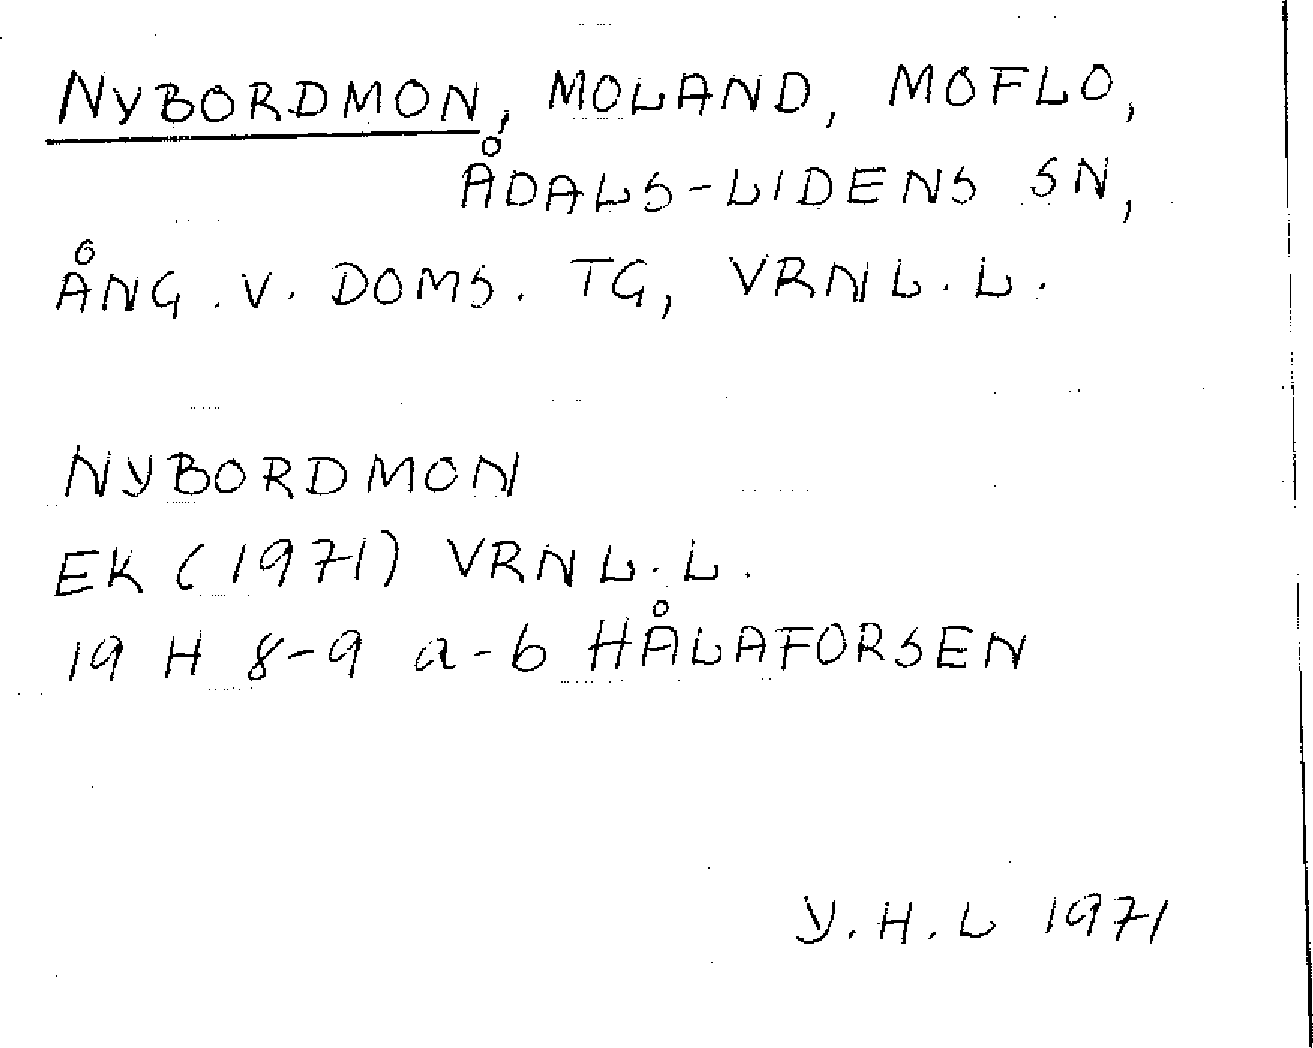 NYBORDMON, MOLAND, MOFLO,
ÅDALS-LIDENS SN,
ÅNG. V. DOMS. TG, VRNL. L.
NYBORDMON
EK (1971) VRNL. L.
19 H 8-9 a-b HÅLAFORSEN
Y. H. L 1971